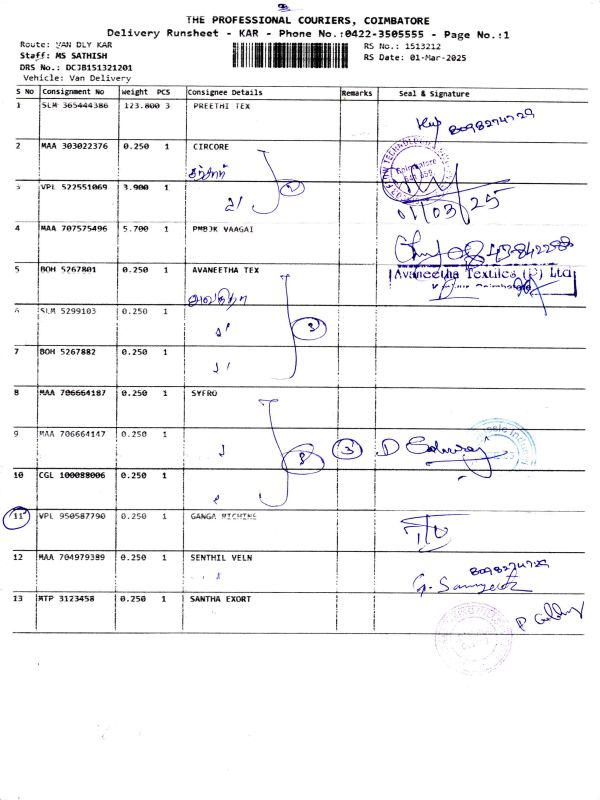 THE PROFESSIONAL COURIERS, COIMBATORE
Delivery Runsheet - KAR - Phone No.:0422-3505555 - Page No.:1
Route: VAN DLY KAR
RS No.: 1513212
Staff: MS SATHISH
RS Date: 01-Mar-2025
DRS No.: DCJB151321201
Vehicle: Van Delivery
S No Consignment No Weight PCS Consignee Details Remarks Seal & Signature
1 SLM 365444386 123.800 3 PREETHI TEX
8098274729
2 MAA 303022376 0.250 1 CIRCORE
3 VPL 522551069 3.900 1
01/03/25
4 MAA 707575496 5.700 1 PMBJK VAAGAI
5 BOH 5267801 0.250 1 AVANEETHA TEX
Avaneetha Textiles (P) Ltd
6 SLM 5299103 0.250 1
3
7 BOH 5267882 0.250 1
8 MAA 706664187 0.250 1 SYFRO
9 MAA 706664147 0.250 1
3
10 CGL 100088006 0.250 1
11 VPL 950587790 0.250 1 GANGA MICHINE
12 MAA 704979389 0.250 1 SENTHIL VELN
8098274729
13 MTP 3123458 0.250 1 SANTHA EXORT